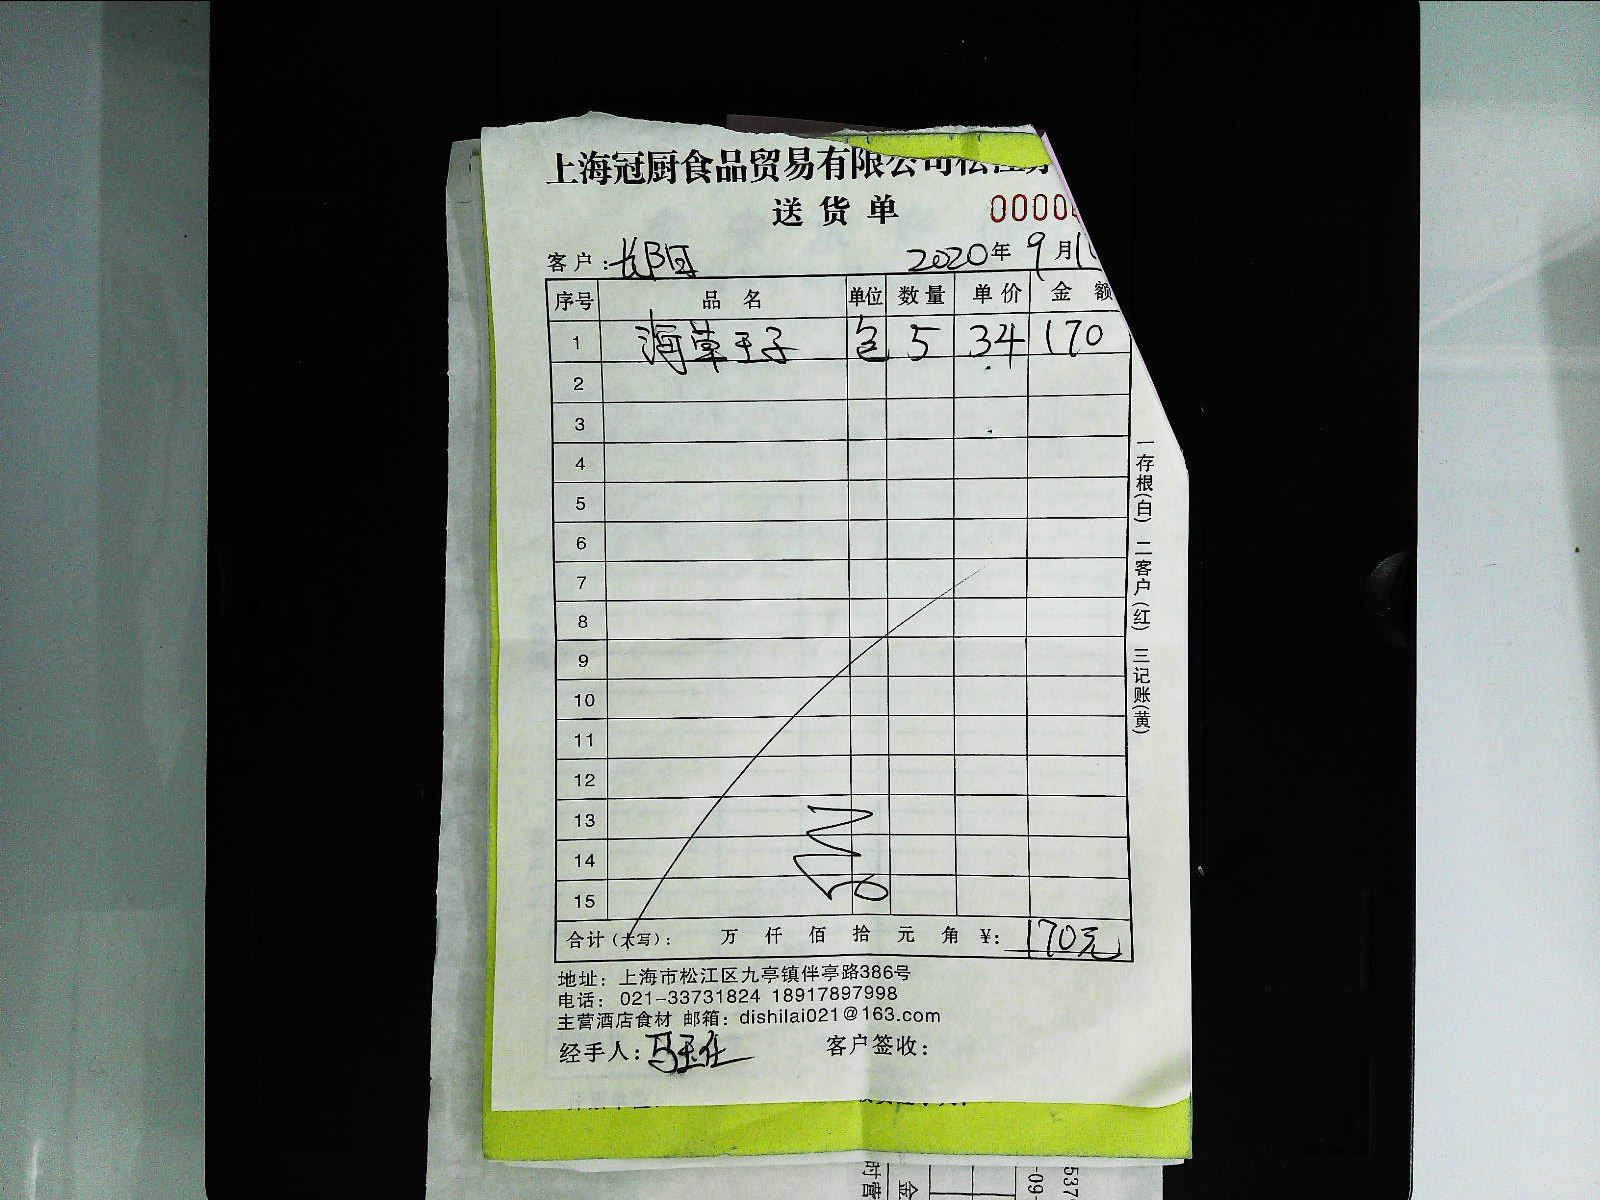 上海冠厨食品贸易有限公司松江分
送货单
0000
客户: 长阳 2020年9月1
序号 品名 单位 数量 单价 金额
1 海草王子 包 5 34 170
2
3
4
5
6
7
8
9
10
11
12
13
14
15
合计(大写): 万 仟 佰 拾 元 角 ¥: 170元
地址: 上海市松江区九亭镇伴亭路386号
电话: 021-33731824 18917897998
主营酒店食材 邮箱: dishilai021@163.com
经手人: 客户签收:
一存根(白) 二客户(红) 三记账(黄)
时营
金
-09-
537